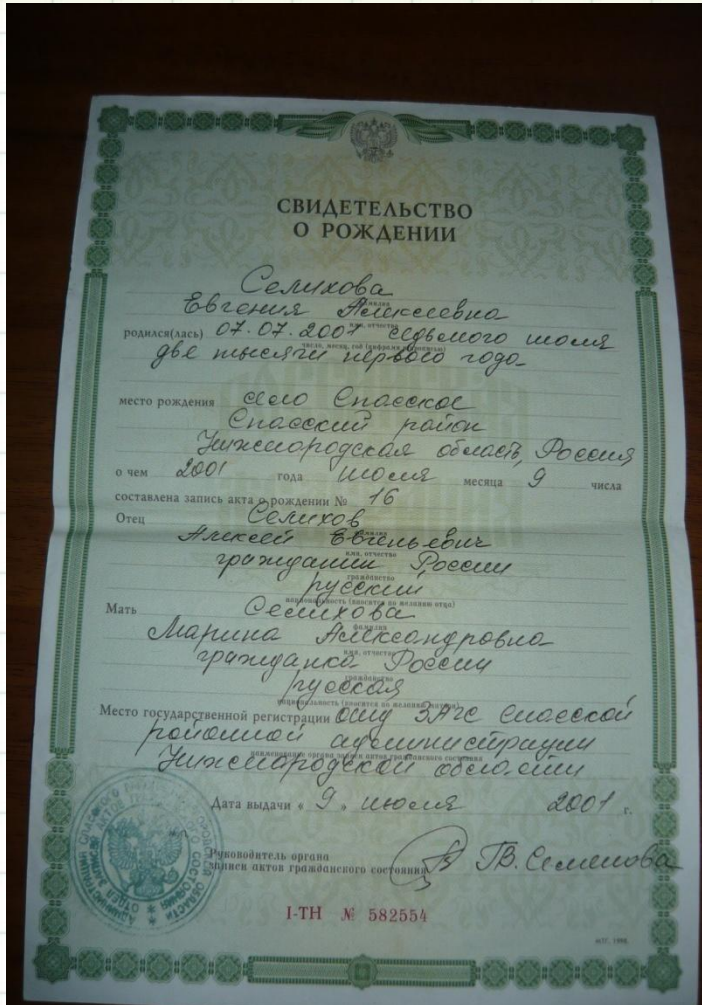 СВИДЕТЕЛЬСТВО
О РОЖДЕНИИ
Селихова
фамилия
Евгения Алексеевна
имя, отчество
родился(лась) 07.07.2001 седьмого июля
число, месяц, год (цифрами и прописью)
две тысячи первого года
место рождения село Спасское
Спасский район
Нижегородская область, Россия
о чем 2001 года июля месяца 9 числа
составлена запись акта о рождении № 16
Отец Селихов
фамилия
Алексей Евгеньевич
имя, отчество
гражданин России
гражданство
русский
национальность (вносится по желанию отца)
Мать Селихова
фамилия
Марина Александровна
имя, отчество
гражданка России
гражданство
русская
национальность (вносится по желанию матери)
Место государственной регистрации отд ЗАГС Спасской
районной администрации
наименование органа записи актов гражданского состояния
Нижегородской области
Дата выдачи « 9 » июля 2001 г.
М.П.
Руководитель органа
записи актов гражданского состояния Г.В. Семенова
I-ТН № 582554